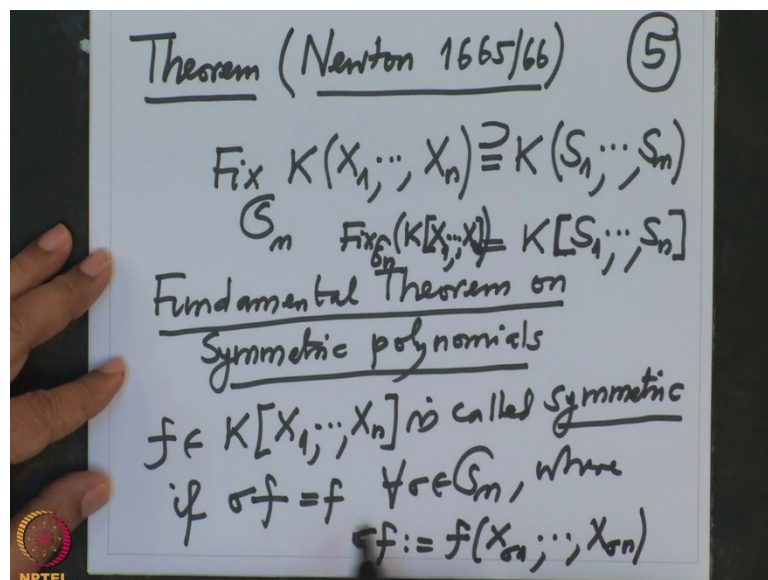 Theorem (Newton 1665/66) 5
Fix K(X₁,…,Xₙ) ⊇= K(S₁,…,Sₙ)
𝔖ₙ Fix𝔖ₙ(K[X₁,…,X]) = K[S₁,…,Sₙ]
Fundamental Theorem on
Symmetric polynomials
f ∈ K[X₁,…,Xₙ] is called symmetric
if σf = f ∀σ∈𝔖ₙ, where
σf := f(Xσ₁,…,Xσₙ)
NPTEL